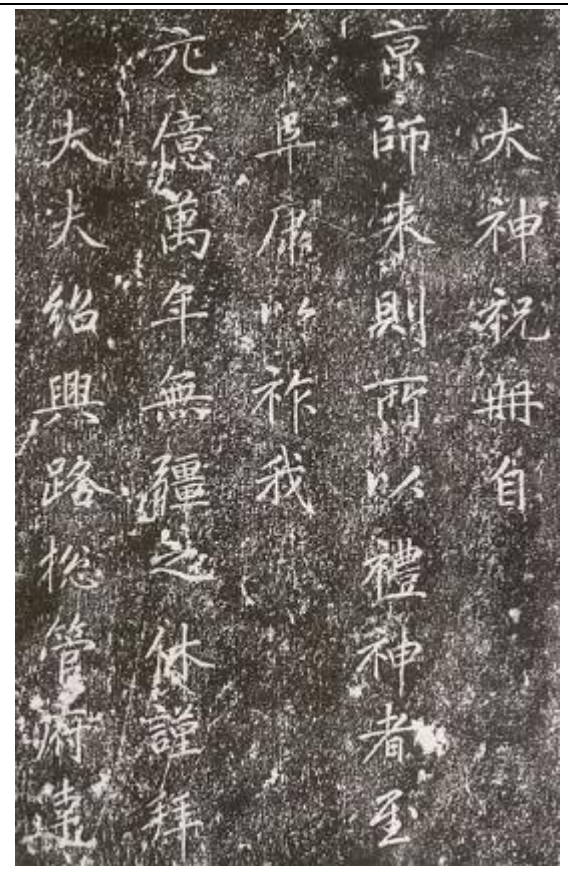 大神祝冊自
京師来則所以禮神者至
阜康以祚我
元億萬年無疆之休謹拜
大夫紹興路捴管府達